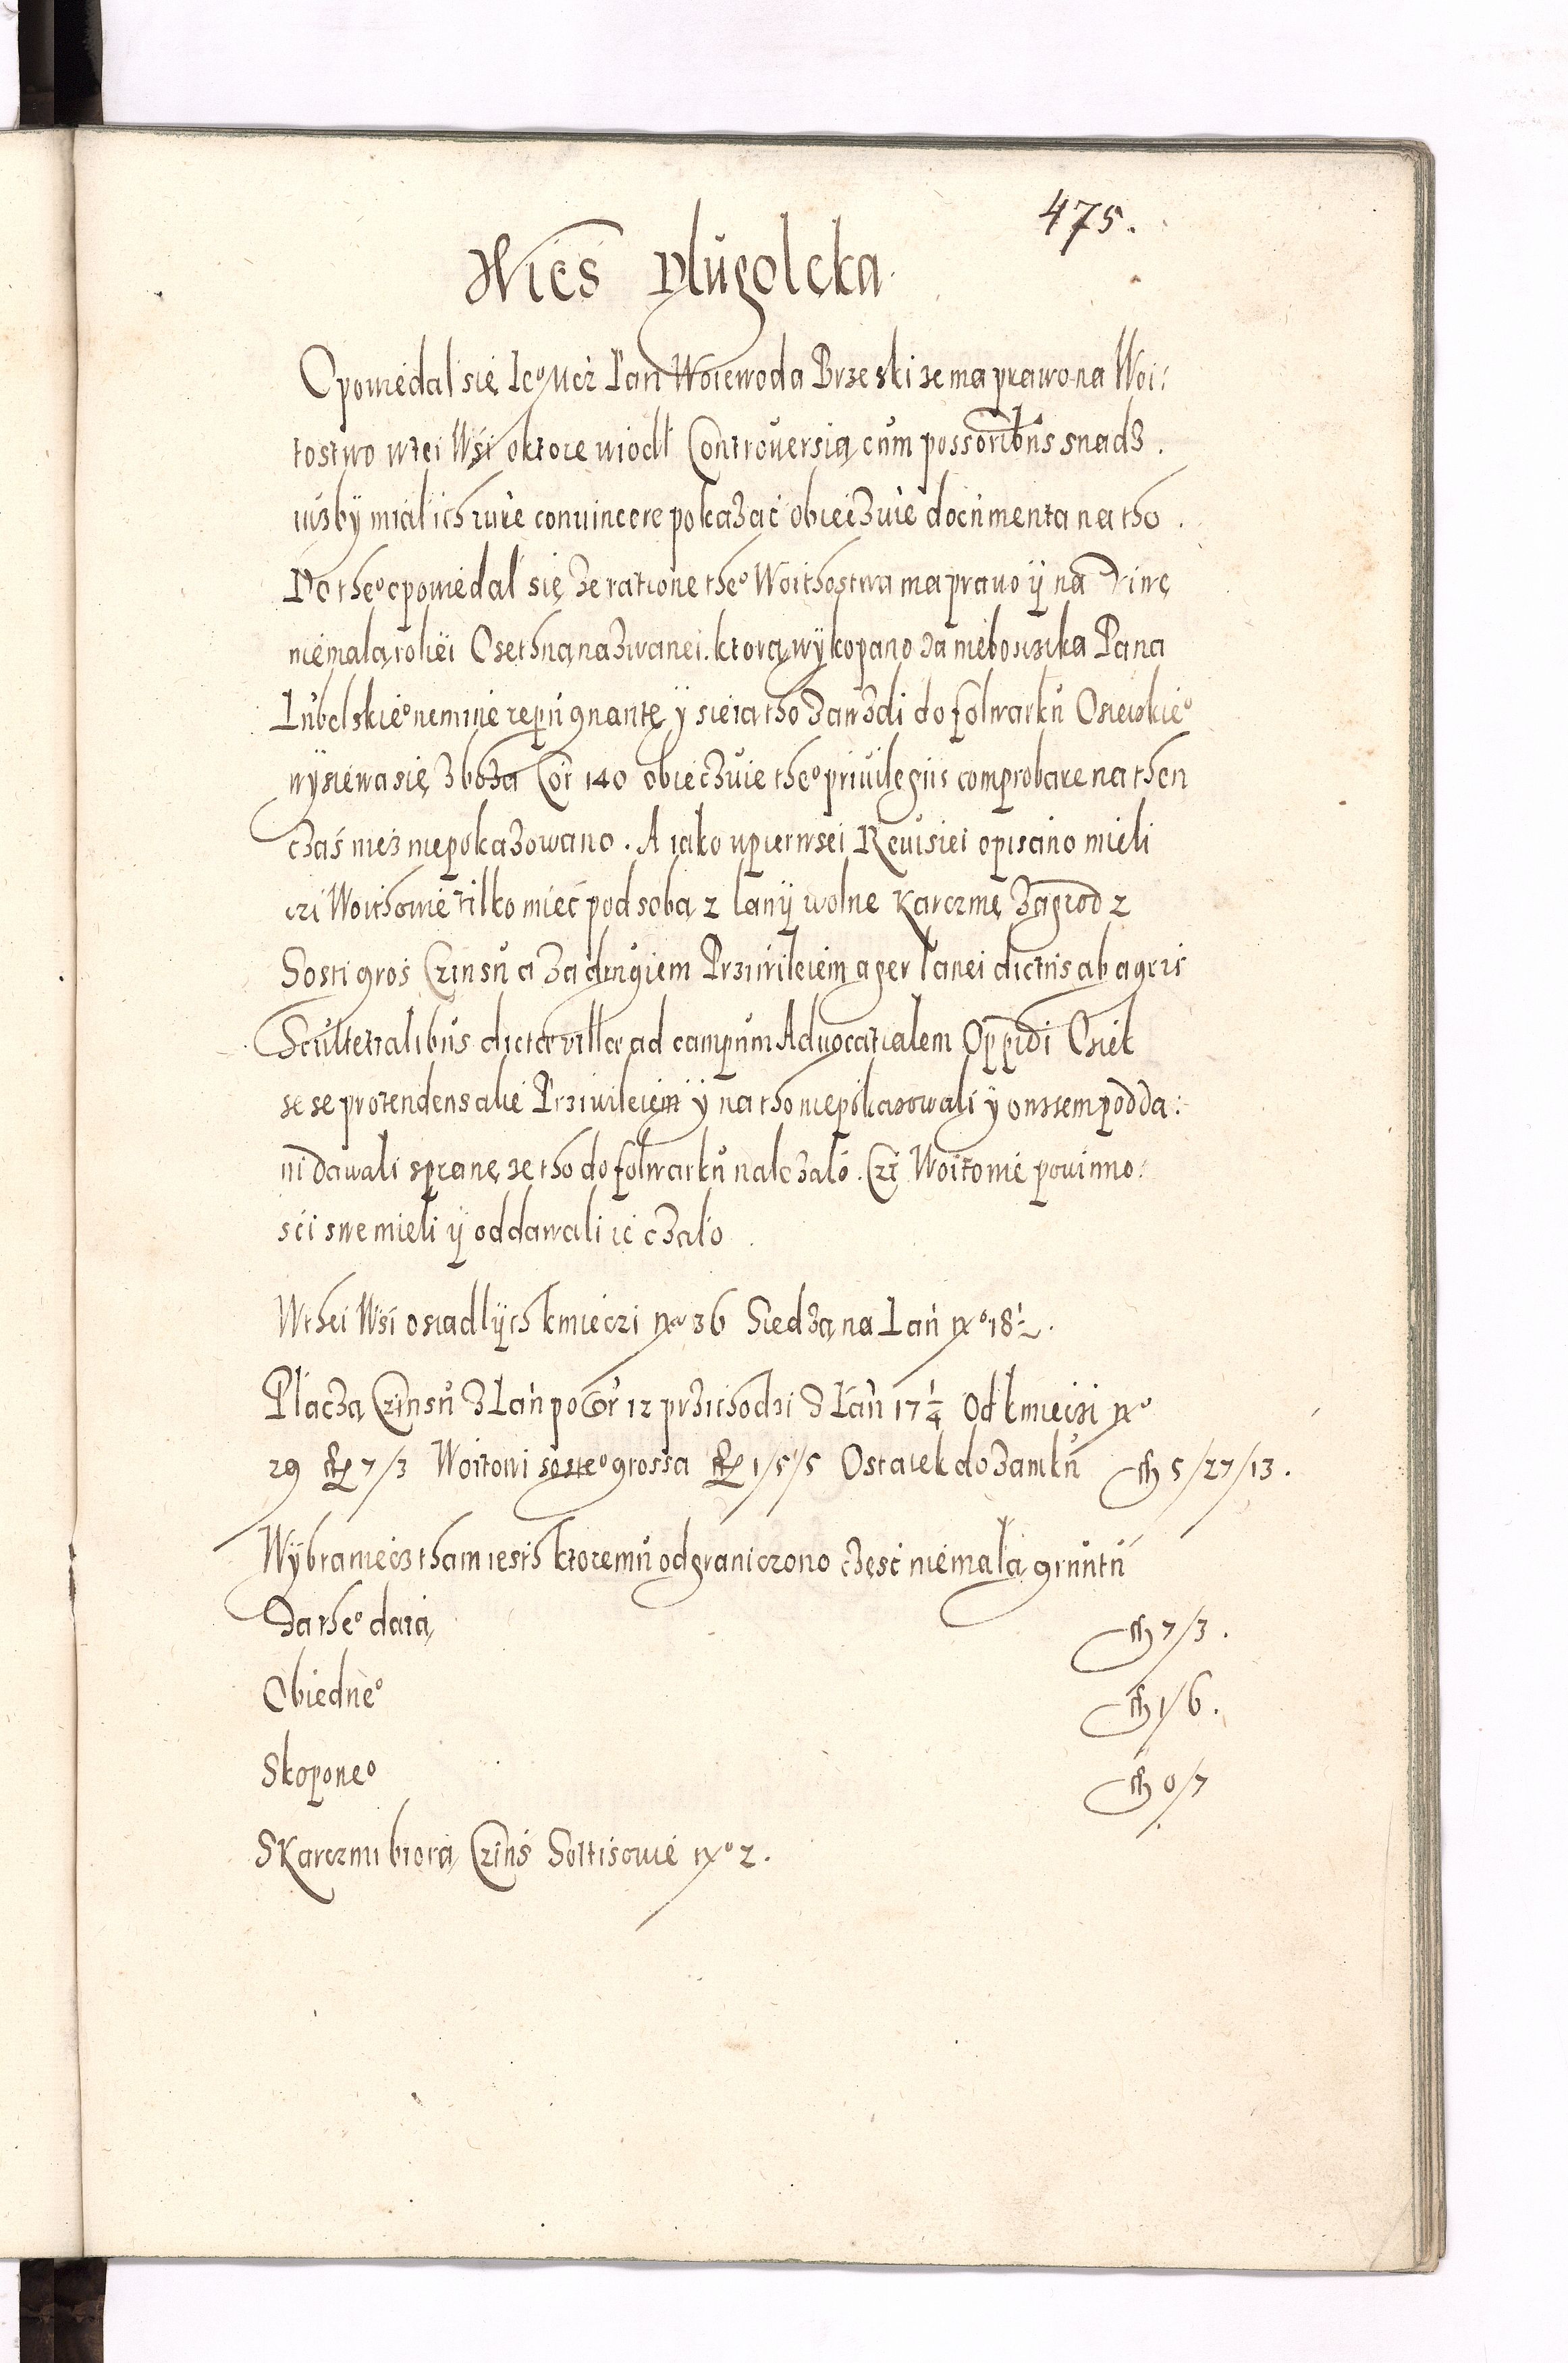 475.
Wieś Dlugolęka
Opowiedal się Ieo Mcż Pan Woiewoda Brzeski ze ma prawo na Woi:
tostwo wtei Wśi oktore wiodł Controuersią cum possoribus snadz.
iuzby miał ich iure conuincere pokazać obieczuie documenta na tho.
Do theo opowiedal się ze ratione theo Woithostwa ma prawo ÿ na
niemałą roliei Osethną nazwanei. ktorą wÿkopano za niebosczika Pana
Lubelskieo nemine repugnante y sieią tho zawzdi do folwarku Osieiskieo
wÿsiewa się zboza Cor 140 obieczuie theo priuilegiis comprobare na then
czas niez niepokazowano. A iako wpierwsei Reuisiei opisano mieli
czi Woithowie tilko mieć pod sobą 2 lanÿ wolne Karczmę Zagrod 2
Sosti gros Czinsu a za drugiem Prziwileiem ager lanei dictus ab agris
Scultetialibus dictae villae ad campum Aduocatialem Oppidi Osiek
se se protendens ale Prziwileiem ÿ na tho niepokazowali y owssem podda:
ni dawali sprawę ze tho do folwarku nalezało. Czi Woitowie powinno:
sći swe mieli ÿ oddawali ie czało.
Wthei Wśi osiadlÿch kmieczi no 36 Siedzą na Lań no 18½.
Placzą Czinsu z Lań po Gr 12 przichodzi z Łań 17¼ Od kmieczi no
29 7/3 Woitowi sosteo grossa 1/5/5 Ostatek do Zamku 5/27/13.
Wÿbraniecz tham iesth ktoremu odgraniczono częsć niemałą gruntu
Za theo daią 7/3.
Obiedneo 1/6.
Skoponeo 0/7
S Karczmi biorą Czinś Soltisowie no 2.